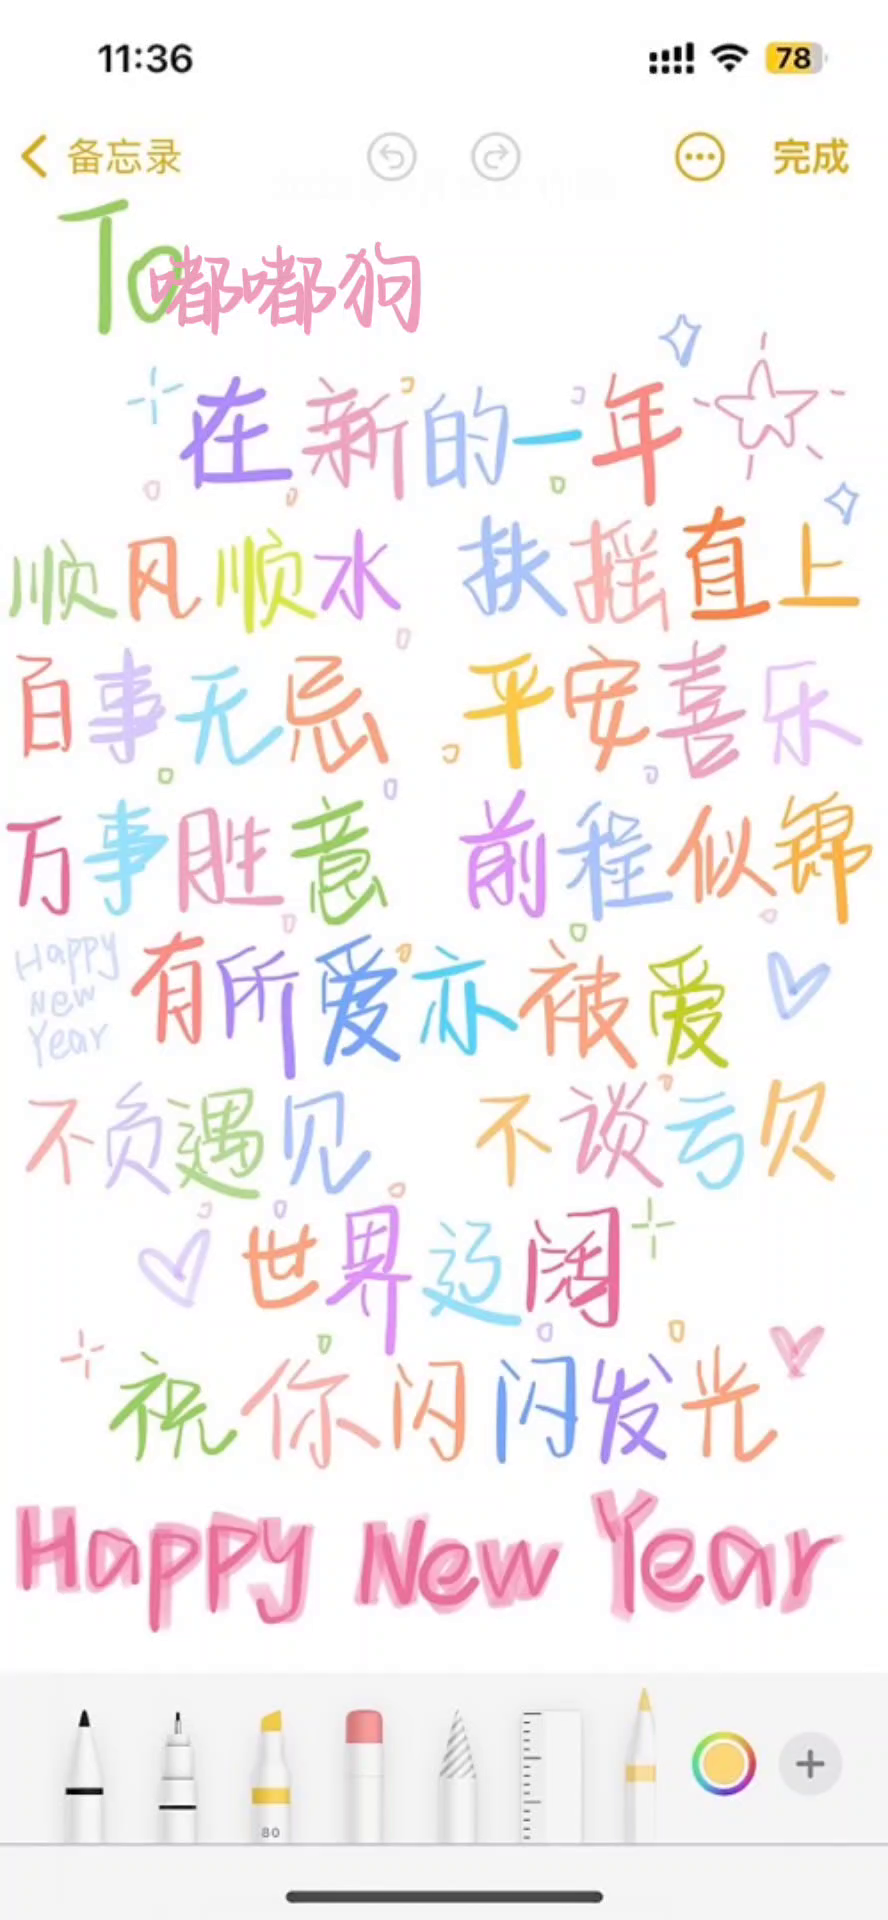 11:36
78
备忘录 完成
To嘟嘟狗
在新的一年
顺风顺水 扶摇直上
百事无忌 平安喜乐
万事胜意 前程似锦
Happy
New
Year
有所爱亦被爱
不负遇见 不谈亏欠
世界辽阔
祝你闪闪发光
Happy New Year
80